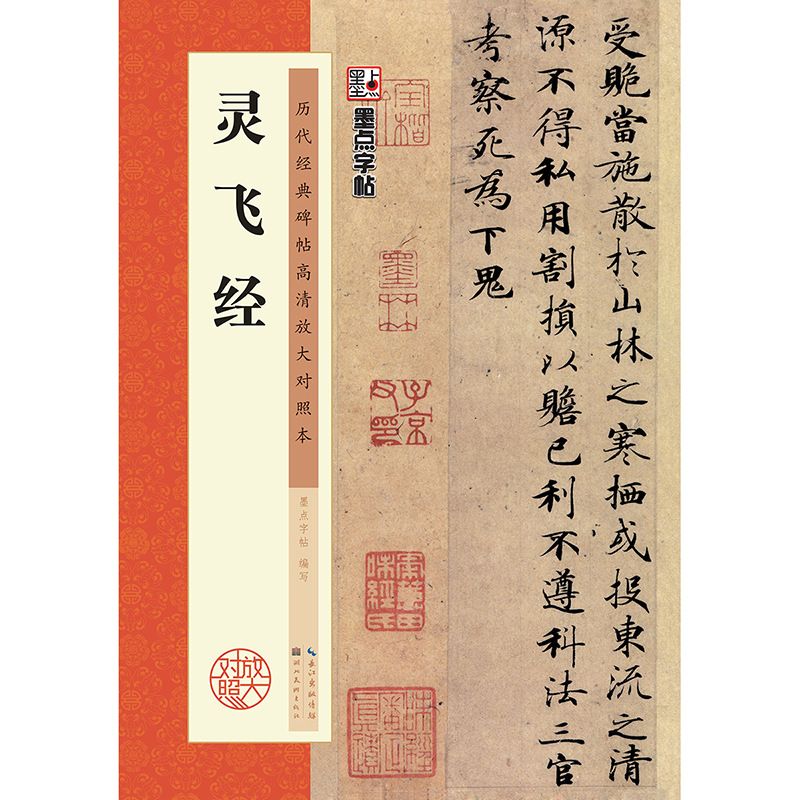 受賄當施散於山林之寒栖或投東流之清
源不得私用割損以贍己利不遵科法三官
考察死為下鬼
墨点
墨点字帖
历代经典碑帖高清放大对照本
墨点字帖 编写
长江出版传媒
湖北美术出版社
灵飞经
放大对照